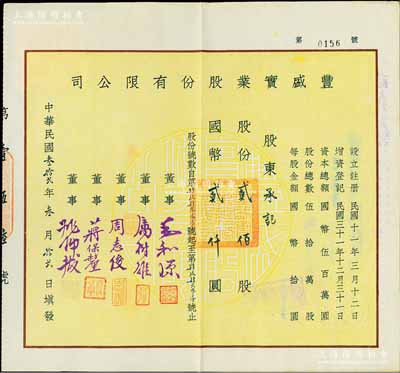 第 0156 號
豐盛實業股份有限公司
設立註冊 民國三十一年三月十二日
增資登記 民國三十一年十二月三十一日
資本總額 國幣伍百萬圓
股份總數 伍拾萬股
每股金額 國幣拾圓
股東 承記
股份 貳佰股
國幣 貳仟圓
股份號數自第
號起至第
號止
董事 毛和源
董事 屠
董事 周志俊
董事 蔣保釐
董事
中華民國叁拾
年叁月
日填發